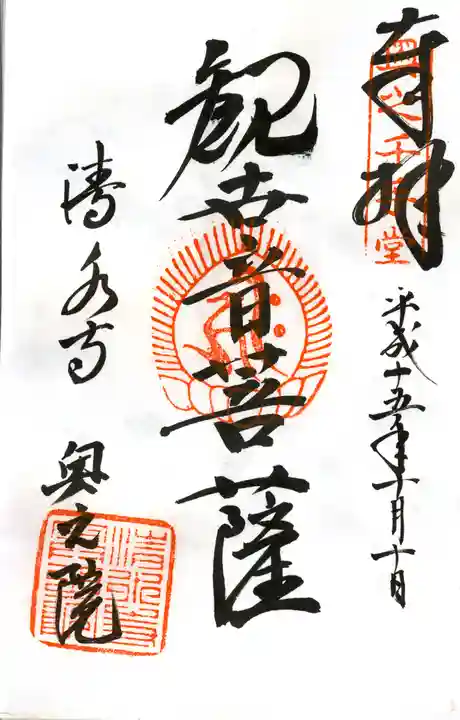 奉拝
平成十五年十月十日
観世音菩薩
清水寺 奥之院